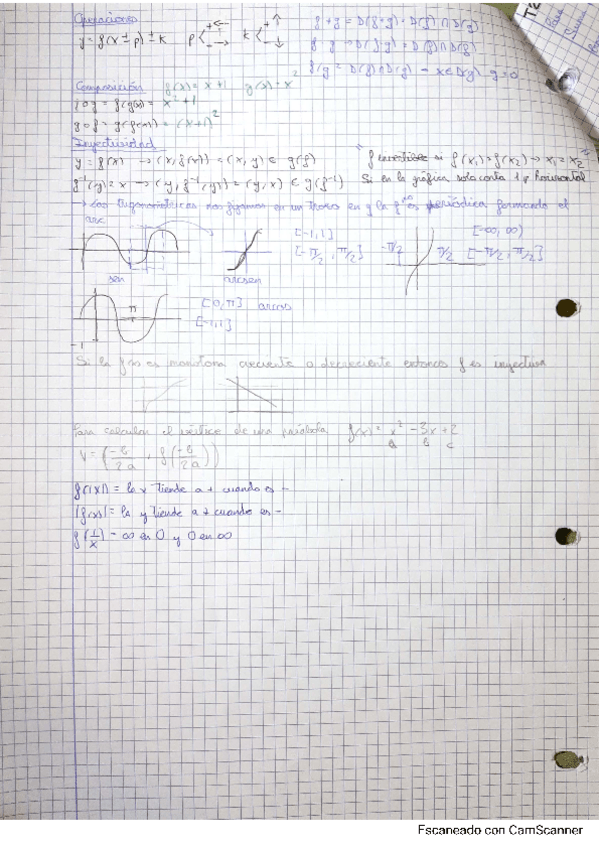 Operaciones
y = f(x ± p) ± k   p   k
f + g = D(f+g) = D(f) ∩ D(g)
f · g → D(f·g) = D(f) ∩ D(g)
f/g = D(f) ∩ D(g) - x ∈ D(g) g=0
Composición   f(x) = x+1   g(x) = x²
f o g = f(g(x)) = x²+1
g o f = g(f(x)) = (x+1)²
Inyectividad
y = f(x) → (x, f(x)) = (x, y) ∈ g(f)
f⁻¹(y) = x → (y, f⁻¹(y)) = (y, x) ∈ g(f⁻¹)
f si f(x₁) = f(x₂) → x₁ = x₂
Si en la gráfica solo corta 1 p horizontal
→ Las trigonométricas nos fijamos en un trozo en q la es periódica formando el
arc
sen
arcsen
[-1,1]
[-π/2, π/2]
-π/2   π/2
[-∞, ∞)
[-π/2, π/2]
π
-1
[0, π] arcos
[-1,1]
Si la f(x) es monótona creciente o decreciente entonces f es inyectiva
Para calcular el vértice de una parábola f(x) = x² - 3x + 2
a   b   c
V = (-b/2a , f(-b/2a))
f(|x|) = la x tiende a + cuando es -
|f(x)| = la y tiende a + cuando es -
f(1/x) - ∞ en 0 y 0 en ∞
Escaneado con CamScanner